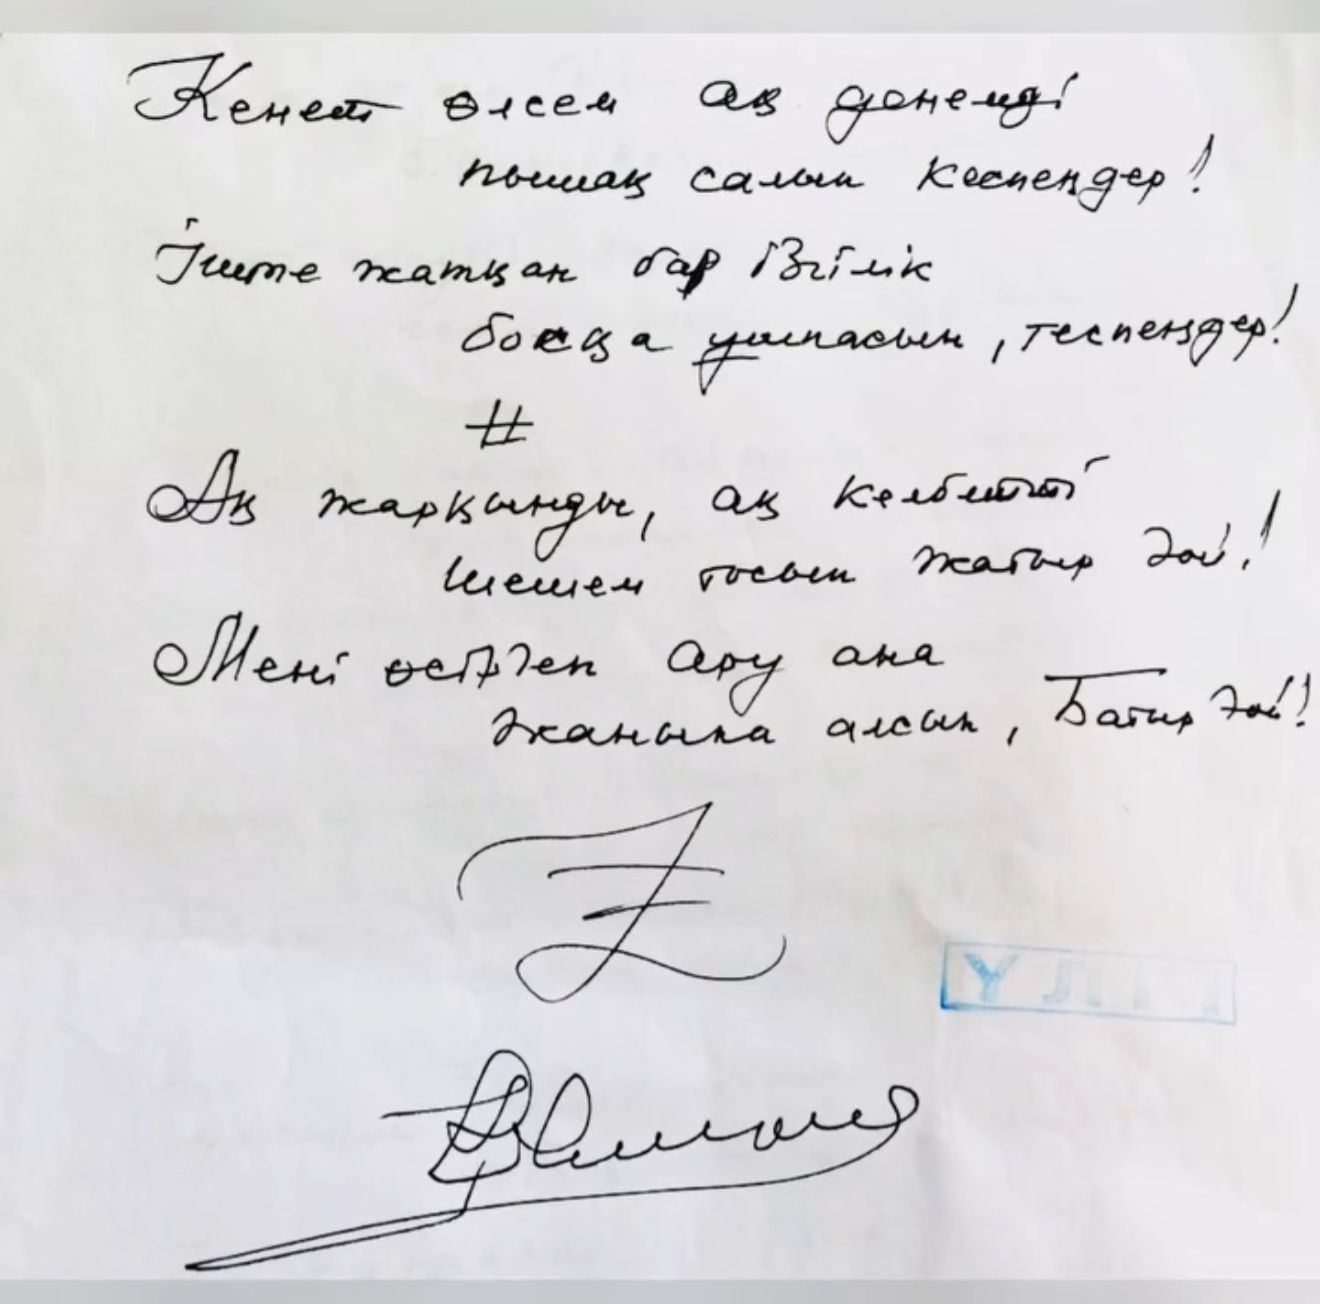 Кенет өлсем ақ денемді
пышақ салып кеспеңдер!
Іште жатқан бар ізгілік
босқа ушпасын, теспеңдер!
#
Ақ жарқынды, ақ келбетті
Шешем тосып жатыр ғой!
Мені өсірген Ару ана
жанына алсын, Батыр ғой!